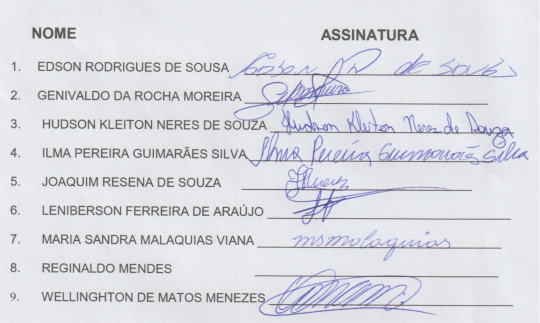 NOME ASSINATURA
1. EDSON RODRIGUES DE SOUSA Edson de Sousa
2. GENIVALDO DA ROCHA MOREIRA
3. HUDSON KLEITON NERES DE SOUZA Hudson Kleiton Neres de Souza
4. ILMA PEREIRA GUIMARÃES SILVA Ilma Pereira Guimarães Silva
5. JOAQUIM RESENA DE SOUZA
6. LENIBERSON FERREIRA DE ARAÚJO
7. MARIA SANDRA MALAQUIAS VIANA msmalaquias
8. REGINALDO MENDES
9. WELLINGHTON DE MATOS MENEZES